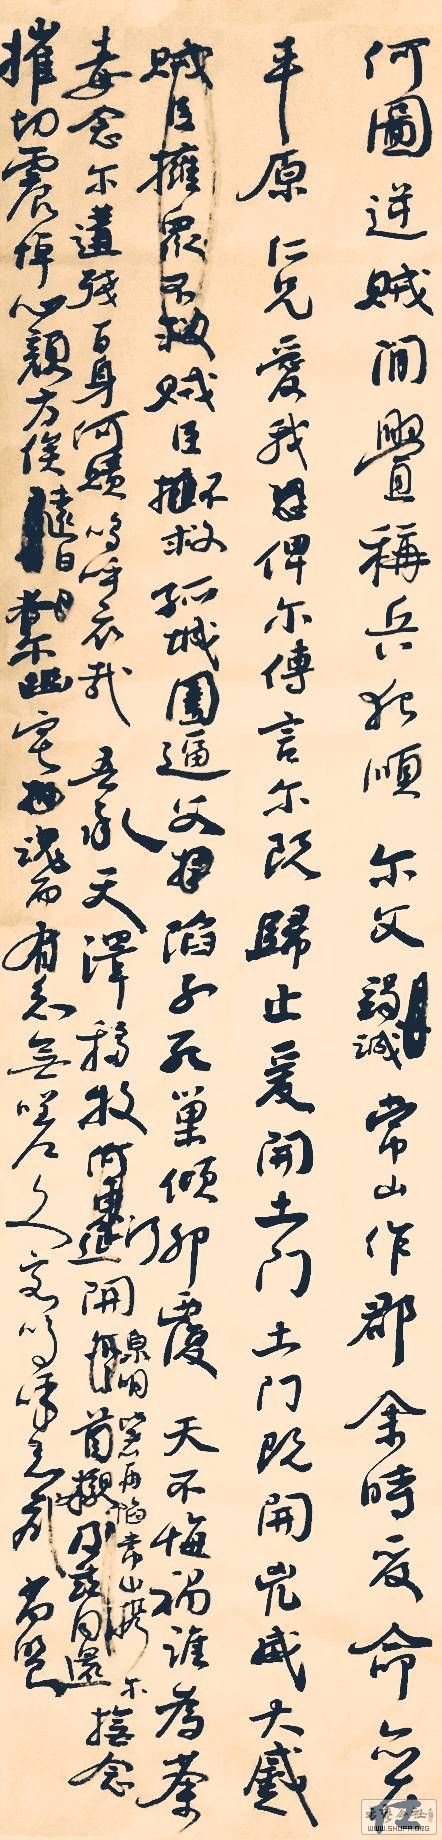 何圖逆賊間舋稱兵犯順尔父竭誠常山作郡余時受命亦在
平原仁兄愛我俾尔傳言尔既歸止爰開土門土門既開兇威大蹙
賊臣擁眾不救賊臣擁不救孤城圍逼父擒陷子死巢傾卵覆天不悔禍誰為荼
毒念尔遘殘百身何贖嗚呼哀哉吾承天澤移牧河東近河開泉明尔之再陷常山攜尔首櫬及茲同還撫念
摧切震悼心顏方俟遠日卜尔幽宅撫魂而有知無嗟久客嗚呼哀哉尚饗
WWW.SHUFA.ORG